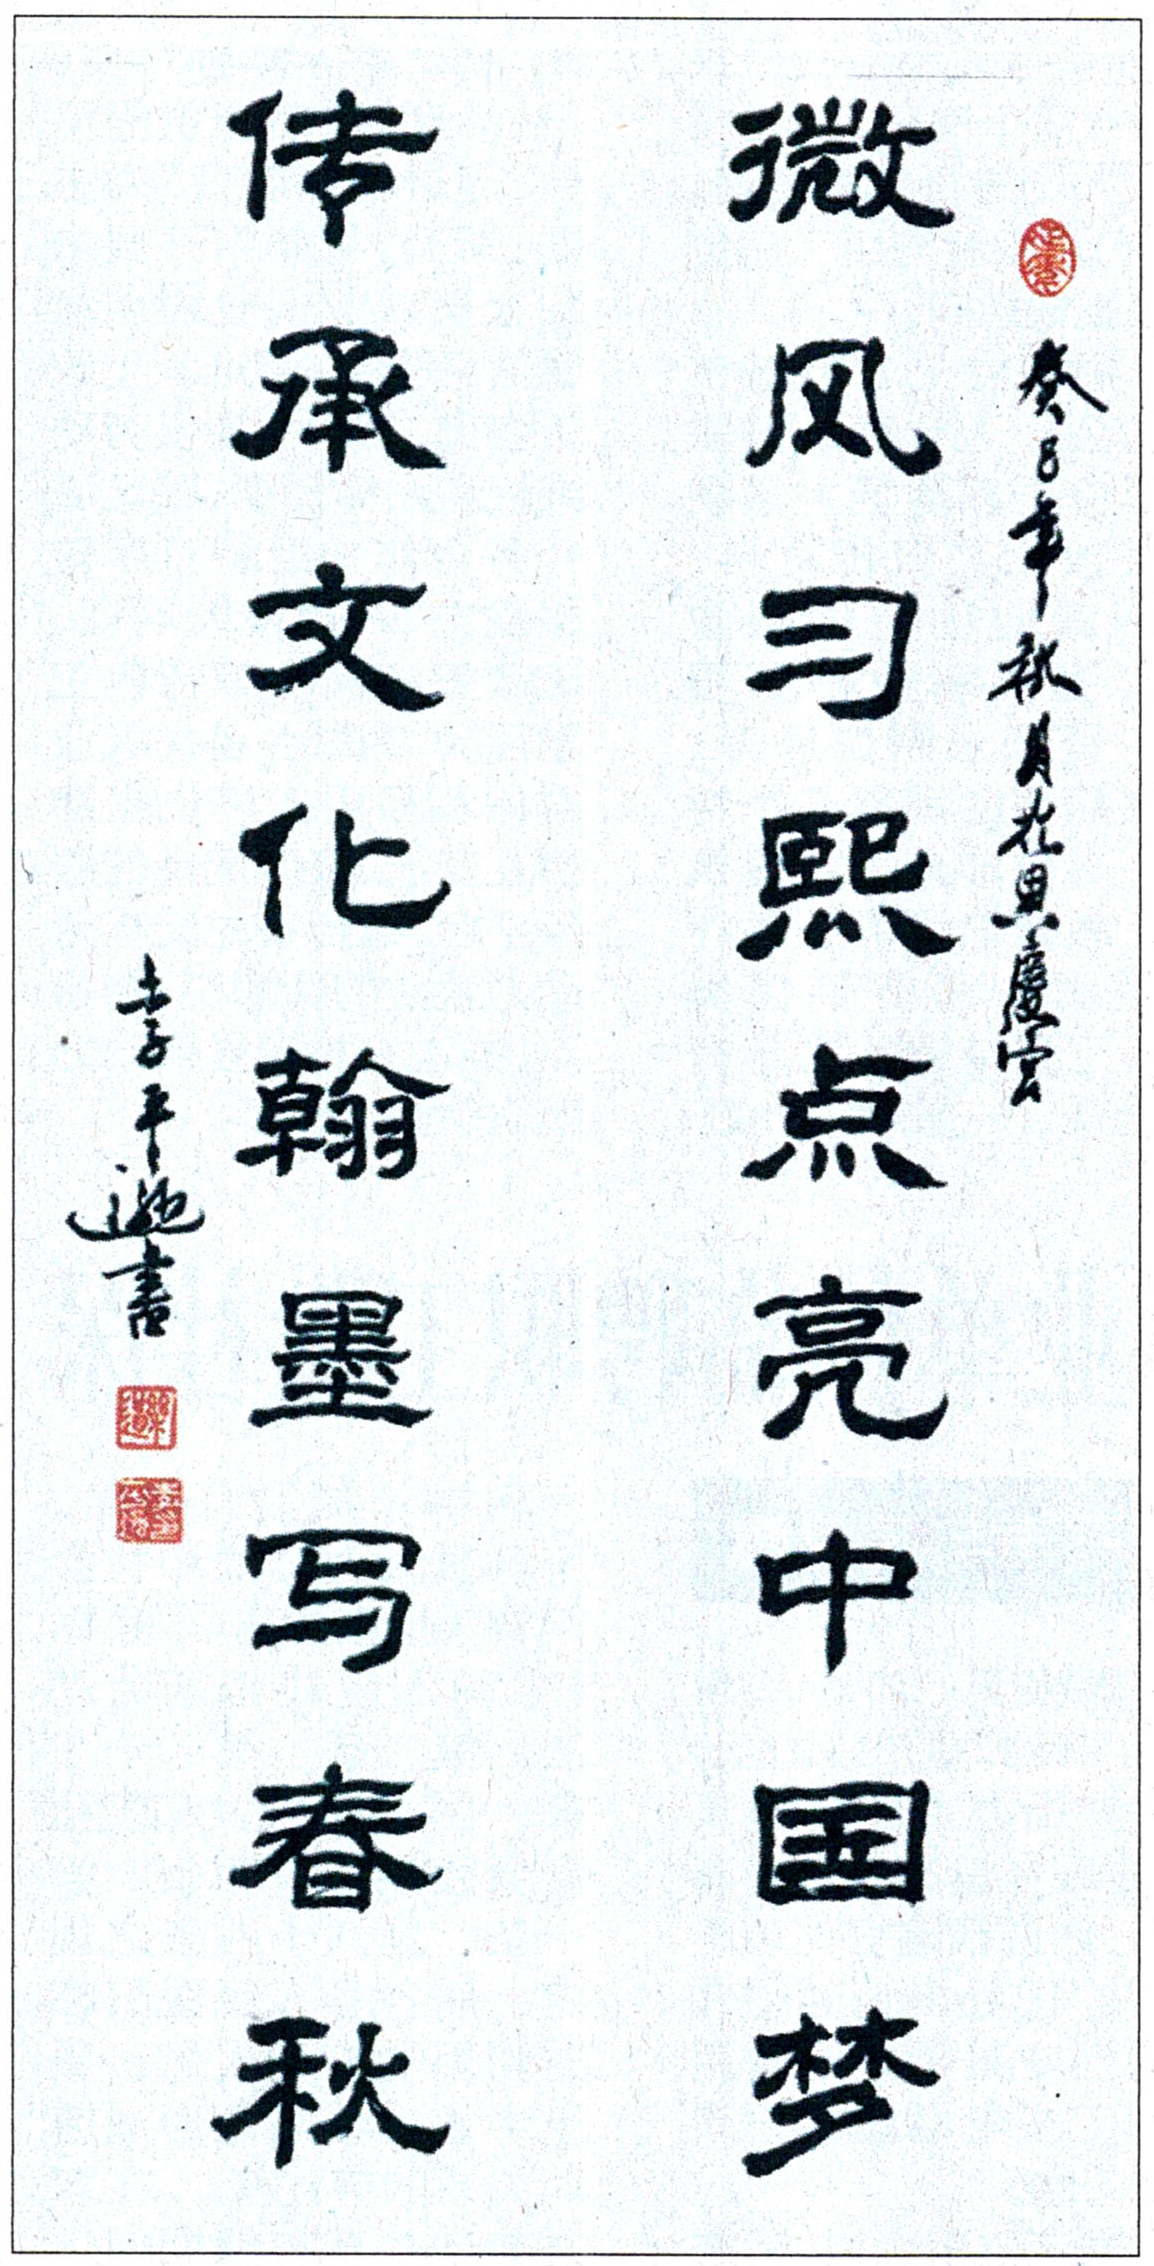 癸巳年秋月于恩庆云
微风习熙点亮中国梦
传承文化翰墨写春秋
李平逊书